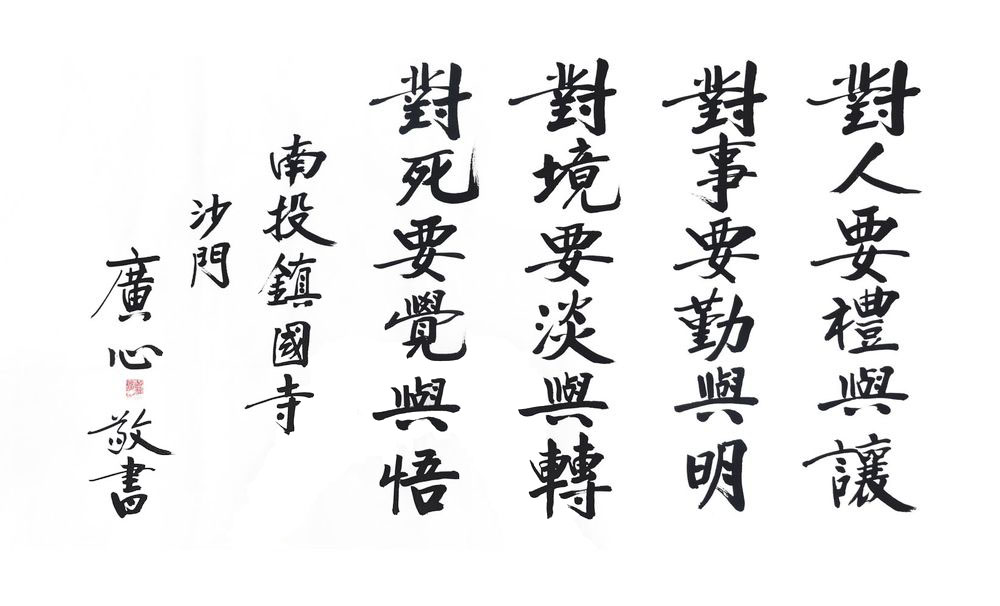 對人要禮與讓
對事要勤與明
對境要淡與轉
對死要覺與悟
南投鎮國寺
沙門
廣心敬書